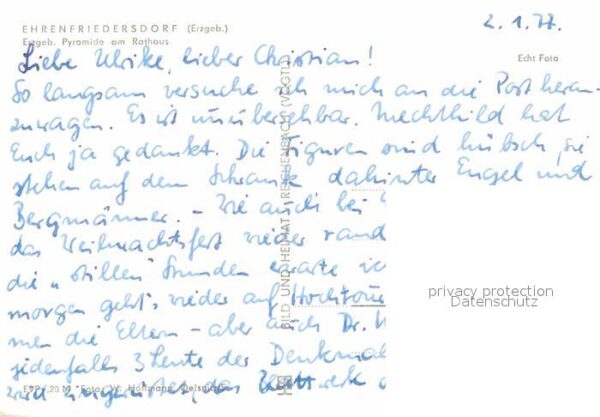 EHRENFRIEDERSDORF (Erzgeb.)
Erzgeb. Pyramide am Rathaus
2.1.77.
Echt Foto
Liebe Ulrike, lieber Christian!
So langsam versuche ich mich an die Post heran-
zuwagen. Es ist unübersehbar. Mechthild hat
Euch ja gedankt. Die Figuren sind hübsch, sie
stehen auf dem Schrank dahinter Engel und
Bergmänner. - Wie auch bei
das Weihnachtsfest wieder rand
die "stillen" Stunden erwarte ic
morgen geht's wieder auf Hochtour
men die Eltern - aber auch Dr.
jedenfalls 3 Leute der Denkmal
wird
BILD UND HEIMAT REICHENBACH (VOGTL)
EVP -,20 M Foto:
privacy protection
Datenschutz